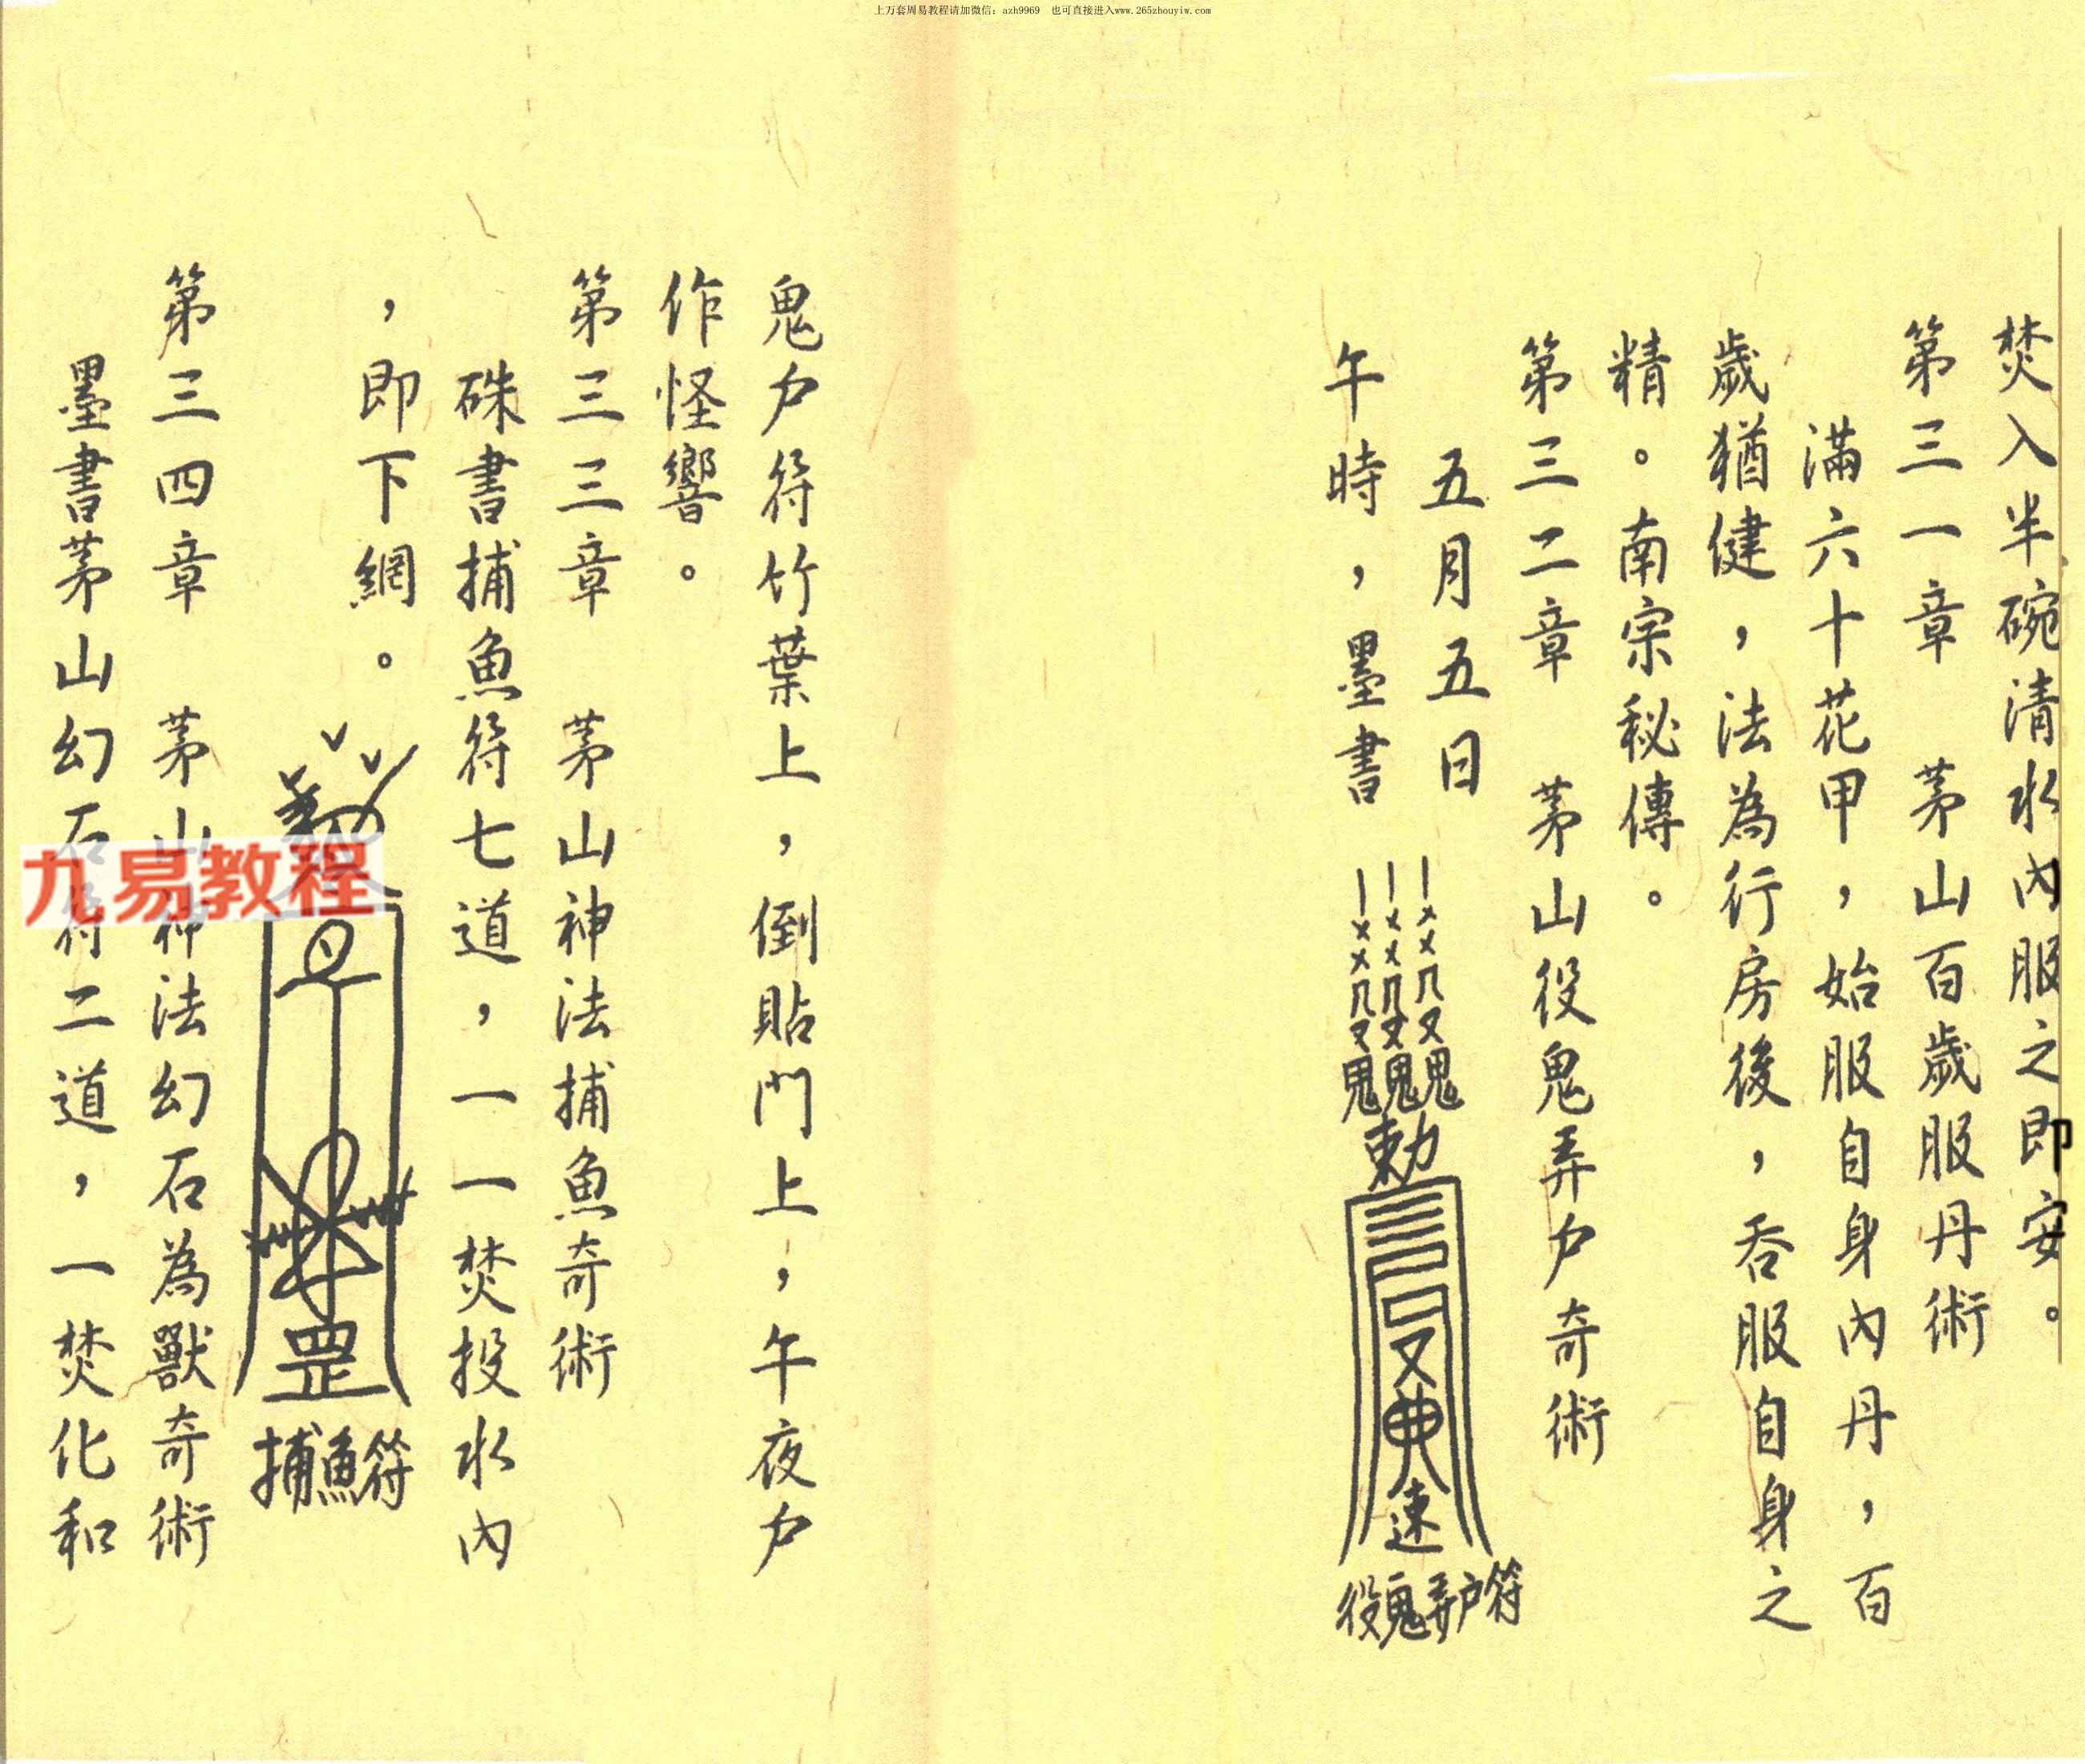 上万套周易教程请加微信：azh9969　也可直接进入www.265zhouyiw.com
焚入半碗清水內服之即安。
第三一章　茅山百歲服丹術
滿六十花甲，始服自身內丹，百
歲猶健，法為行房後，吞服自身之
精。南宗秘傳。
第三二章　茅山役鬼弄户奇術
五月五日
午時，墨書
鬼鬼鬼
勅
速
役鬼弄户符
鬼户符竹葉上，倒貼門上，午夜户
作怪響。
第三三章　茅山神法捕魚奇術
硃書捕魚符七道，一一焚投水內
，即下網。
罡
捕魚符
第三四章　茅山神法幻石為獸奇術
墨書茅山幻石符二道，一焚化和
九易教程